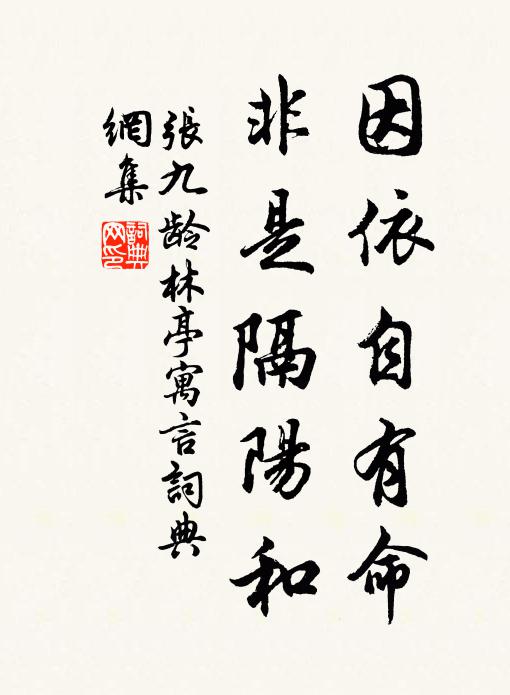 因依自有命
非是隔陽和
張九龄林亭寓言詞典
網集
詞典
网印